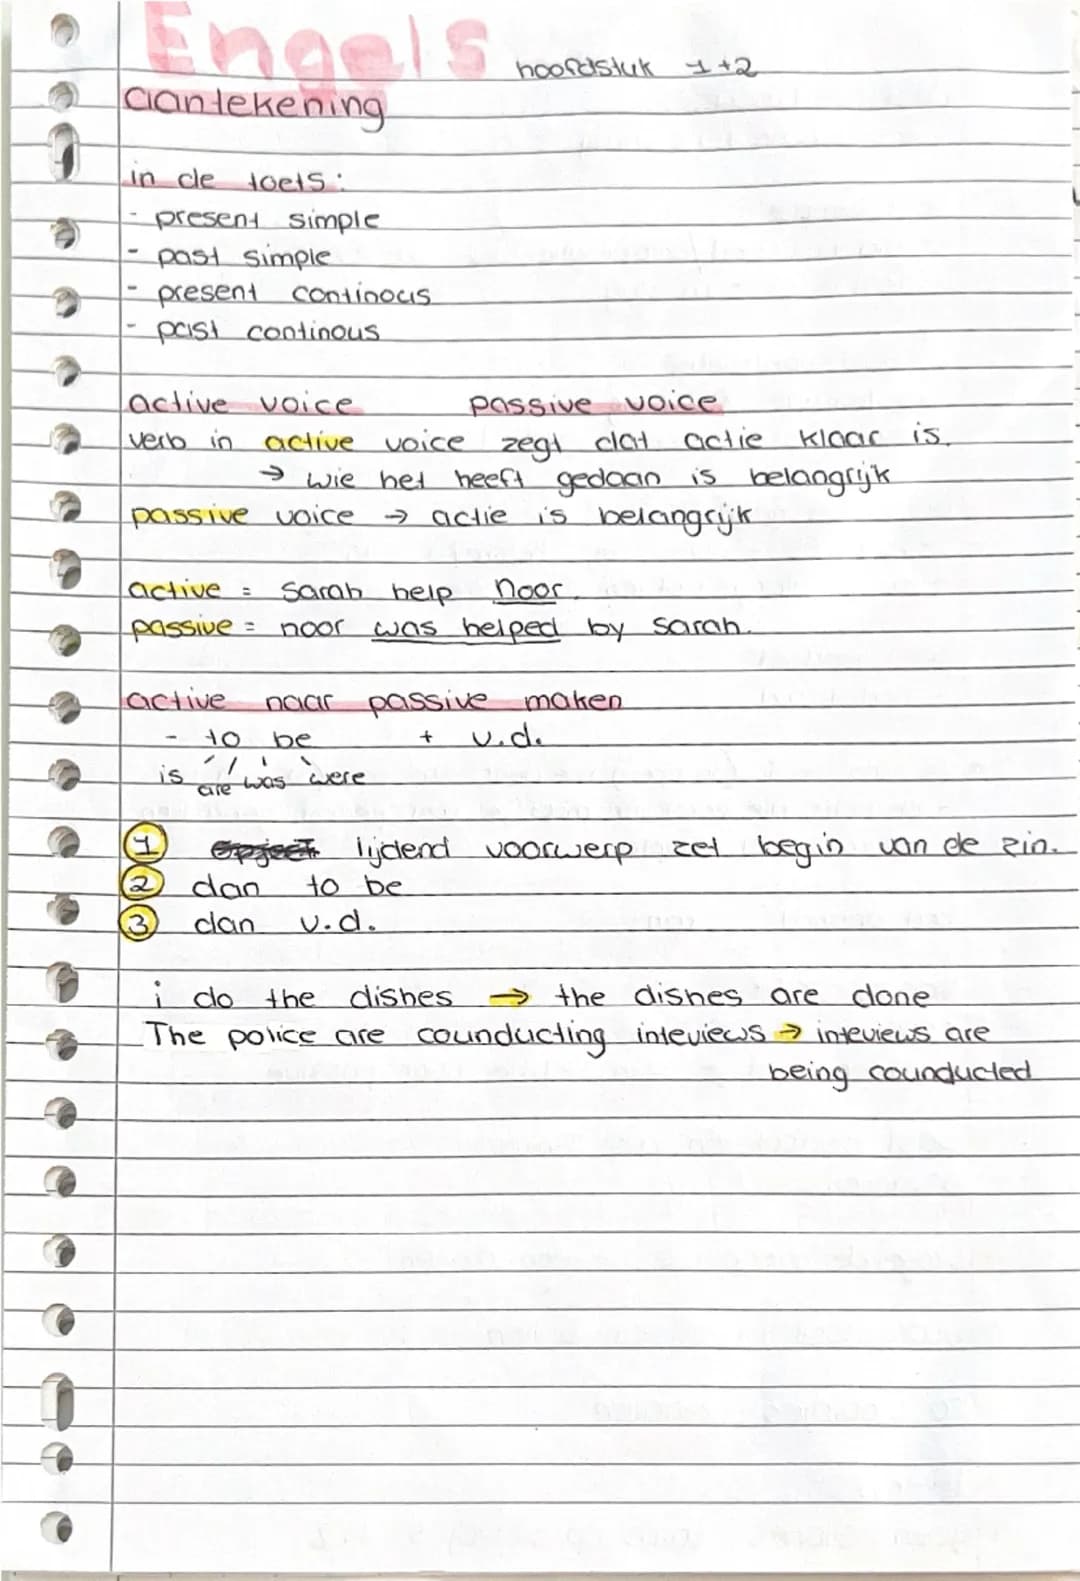 Engels hoofdstuk 1+2
aantekening
in de toets:
- present simple
- past simple
- present continous
- past continous
active voice passive voice
verb in active voice zegt dat actie klaar is.
→ wie het heeft gedaan is belangrijk
passive voice → actie is belangrijk
active = Sarah help Noor.
passive = noor was helped by Sarah.
active naar passive maken
- to be + v.d.
is are was were
1 lijdend voorwerp zet begin van de zin.
2 dan to be
3 dan v.d.
i do the dishes → the dishes are done
The police are counducting inteviews → inteviews are
being counducted